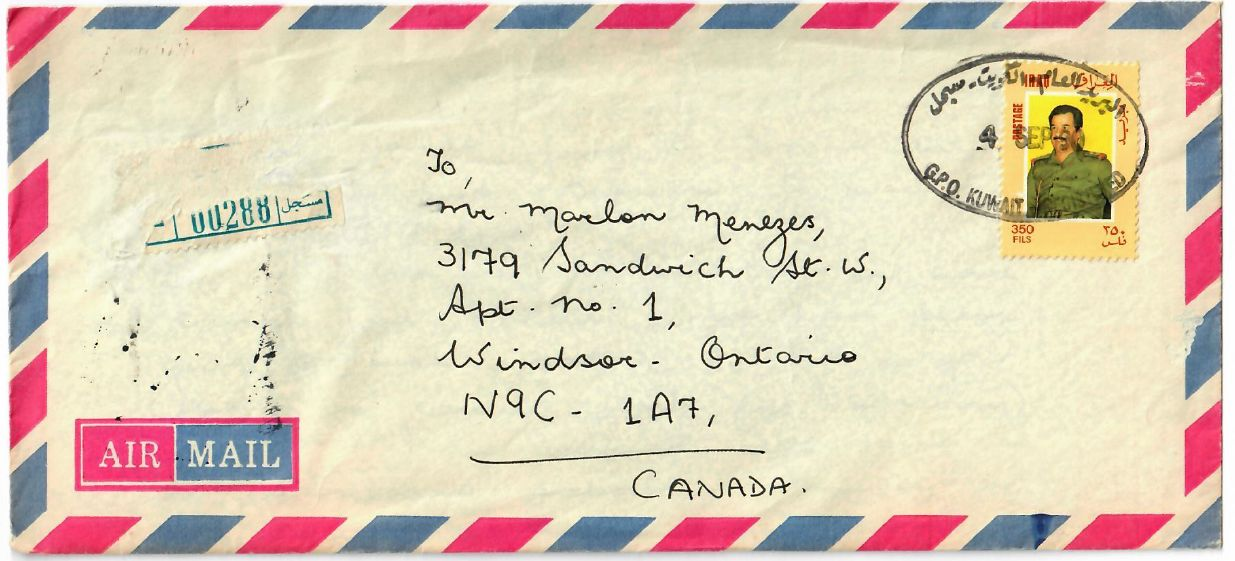 البريد العام الكويت - مسجل
4 SEP 90
G.P.O. KUWAIT
IRAQ العراق
POSTAGE بريد
350 ٣٥٠
FILS فلس
00288 مسجل
To,
Mr. Marlon Menezes,
3179 Sandwich St. W.,
Apt. no. 1,
Windsor - Ontario
N9C - 1A7,
CANADA.
AIR MAIL